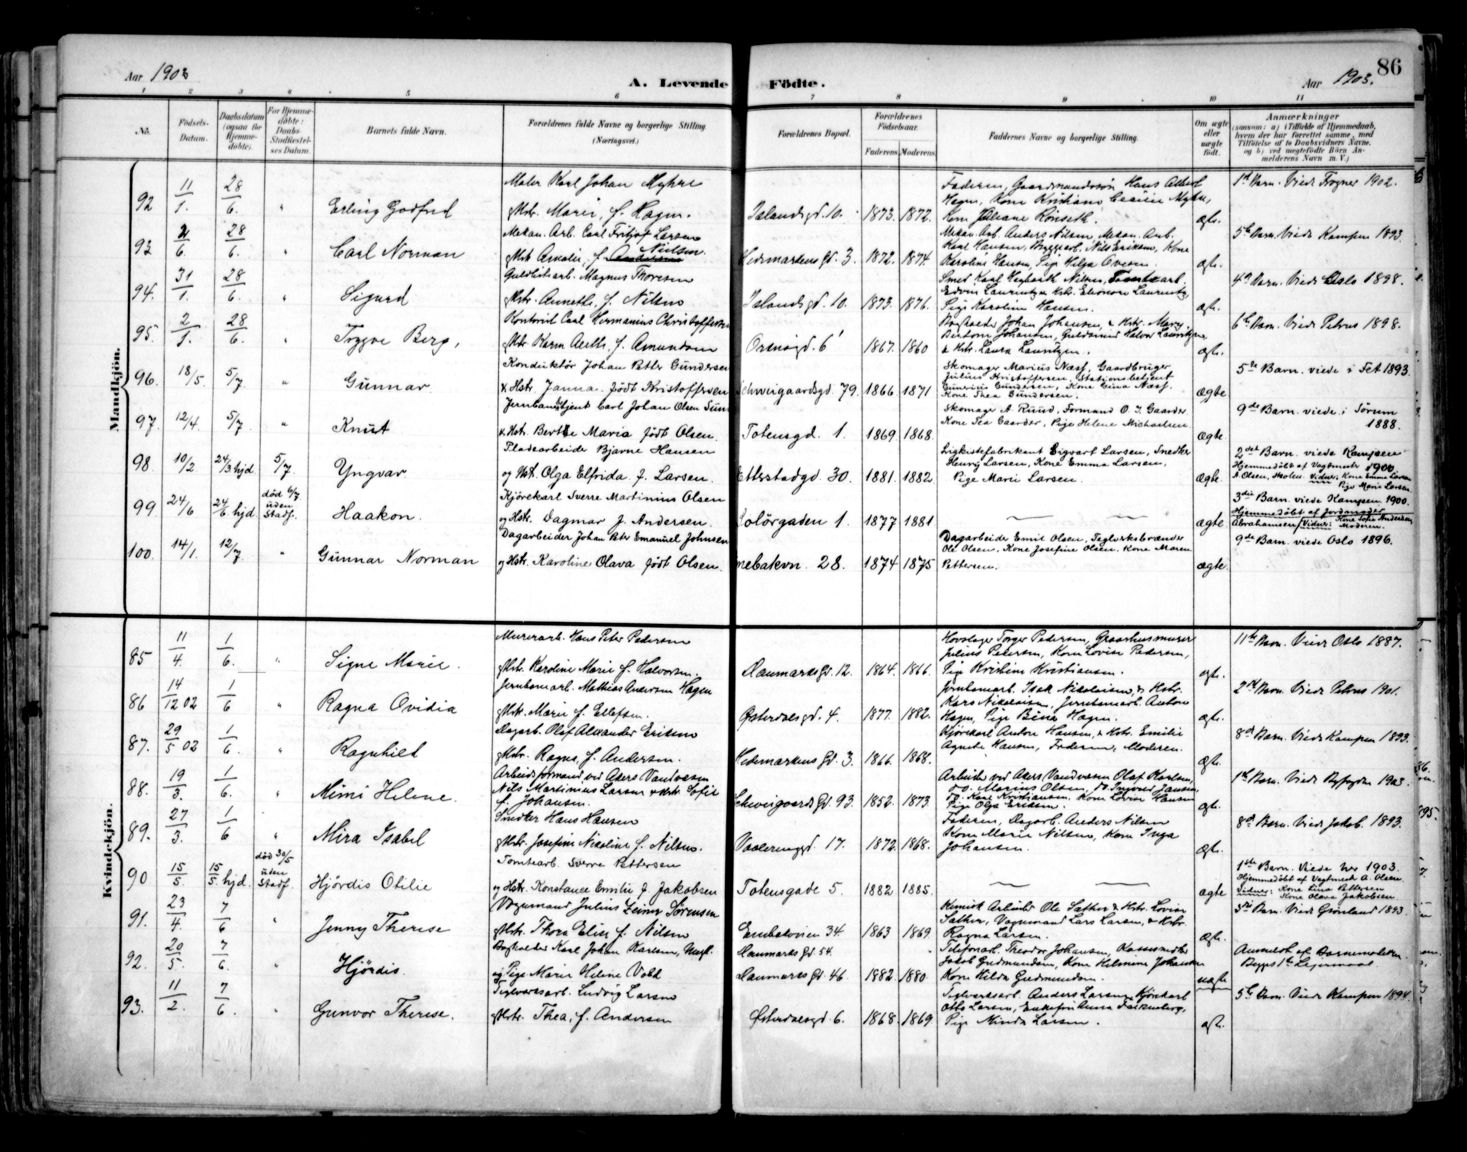 Aar 1903
A. Levende Fødte.
Aar 1903.
86
1 2 3 4 5 6 7 8 9 10 11
No.
Fødsels-Datum.
Daabsdatum (ogsaa for Hjemmedøbte).
For Hjemmedøbte: Daabs Stadfæstelses Datum.
Barnets fulde Navn.
Forældrenes fulde Navne og borgerlige Stilling (Næringsvei.)
Forældrenes Bopæl.
Forældrenes Fødselsaar.
Faderens. Moderens.
Faddernes Navne og borgerlige Stilling.
Om ægte eller uægte født.
Anmærkninger
(saasom: a) i Tilfælde af Hjemmedaab, hvem der har forrettet samme, med Tilføielse af to Daabsvidners Navne, og b) ved uægtefødte Børn Anmelderens Navn m. V.)
Mandkjön.
92 11/1. 28/6. " Erling Godfred
Maler Karl Johan Myhre
og Hstr. Marie, f. Hagen.
Islandsgd. 10. 1873. 1872.
Faderen, Gaardmandssøn Hans
Hagen, Kone Kristiane
Kone Juliane
ægte.
1st Barn. Viede Frogner 1902.
93 2/6. 28/6. " Carl Norman
Mekan. Arb. Carl Fritjof Larsen
og Hstr. Amalie, f. Nielsen
Hedemarkens gd. 3. 1872. 1874
Mekan. Arb. Anders Nilsen, Mekan. Arb.
Karl Hansen, Nils Eriksen, Kone
Karoline Hansen, Pige Helga
ægte.
5te Barn. Viede Kampen 1893.
94. 31/1. 28/6. " Sigurd
Magnus Thoresen
og Hstr. Annette, f. Nilsen
Islandsgd. 10. 1873. 1876.
Smed Karl Nilsen,
Edvin Lauritz & Hstr. Eleonore
Pige Karoline Hansen.
ægte.
4de Barn. Viede Oslo 1898.
95. 2/1. 28/6. " Trygve Berg,
Kontorist Carl Hermanius Christoffersen
og Hstr. Karen f. Amundsen
6 1867. 1860
Johan Johansen, & Hstr. Mary,
& Hstr. Laura Lauritzen.
ægte.
6te Barn. Viede Petrus 1898.
96. 18/5. 5/7. " Gunnar
Konduktör Johan Petter Gundersen
& Hstr. Janna. född Kristoffersen
Schweigaardsgd. 79. 1866 1871
Skomager Marius Næss, Gaardbruger
Julius Kristoffersen, Stationsbetjent
Gunerius Gundersen, Kone Gina Næss.
Kone Thea Gundersen.
ægte
5te Barn. viede i Fet 1893.
97. 12/4. 5/7. " Knut
Jernbanebetjent Carl Johan Olsen
& Hstr. Berthe Maria född Olsen.
Totensgd. 1. 1869 1868.
Skomager A. Ruud, Formand O. J. Gaarder
Kone Tea Gaarder, Pige Helene Michaelsen
ægte
9de Barn. viede i Sørum 1888.
98. 10/2 24/3 hjd. 5/7. Yngvar
Fladsarbeide Bjarne Hansen
og Hst. Olga Elfrida f. Larsen.
Etterstadgd 30. 1881 1882
Ligkistefabrikant Sigvart Larsen, Snedker
Henrij Larsen, Kone Emma Larsen,
Pige Marie Larsen.
ægte
2det Barn. viede Kampen 1900.
Hjemmedöbt af Vagtmester
A Olsen, Vidner: Kone Emma Larsen
Pige Marie Larsen
99 24/6 24/6 hjd. död 6/7 uden Stadf. Haakon.
Kjörekarl Sverre Martinius Olsen
og Hstr. Dagmar f. Andersen.
Solörgaden 1. 1877 1881
— —
ægte
3die Barn viede Kampen 1900.
Hjemmedöbt af Jordmoder
Abrahamsen, Vidner: Kone Sofie Andersen
Moderen.
100. 14/1. 12/7. " Gunnar Norman
Dagarbeider Johan Peter Emanuel Johnsen
og Hstr. Karoline Olava född Olsen.
Enebakvn. 28. 1874 1875
Dagarbeider Emil Olsen, Teglverksbrænder
Ole Olsen, Kone Josefine Olsen, Kone Maren
Pettersen.
ægte.
9de Barn. viede Oslo 1896.
Kvindekjön.
85 11/4. 1/6. " Signe Marie.
Murerarb. Hans Peter Pedersen
og Hstr. Karoline Marie f. Halvorsen.
Danmarks gd. 12. 1864. 1866.
Hovslager Torger Pedersen,
Julius Pedersen, Kone Lovise Pedersen,
Pige Kristine Kristiansen.
ægte.
11te Barn. Viede Oslo 1887.
86 14/12 02 1/6. " Ragna Ovidia
Jernbanearb. Mathias Andersen Hagen
og Hstr. Marie f. Ellefsen.
Østerdalsgd. 4. 1877. 1882.
Jernbanearb. Isak Nikolaisen, & Hstr.
Kars Nikolaisen, Jernbanearb. Anton
Hagen, Pige Bina Hagen.
ægte.
2det Barn. Viede Petrus 1901.
87. 29/5 02 1/6. " Ragnhild
Dagarb. Olaf Alexander Eriksen
og Hstr. Ragna f. Andersen.
Hedemarkens gd. 3. 1866. 1868.
Kjörekarl Anton Hansen, & Hstr. Emilie
Agnete Hansen, Faderen, Moderen.
ægte.
8de Barn. Viede Kampen 1893.
88. 19/3. 1/6. " Mimi Helene.
Arbeidsformand ved Akers Vandvæsen
Nils Martinius Larsen & Hstr. Sofie
f. Johansen.
Schweigaards gd. 93. 1852. 1873
Arbeider ved Akers Vandvæsen Olaf Karlsen,
do. Marius Olsen, do. Ingvald Jansen,
do. Kone Kristiansen, Kone Lovise Hansen
Pige Olga Eriksen.
ægte.
1ste Barn. Viede 1903.
89. 27/3. 1/6 " Mira Isabel
Snedker Hans Hansen
og Hstr. Josefine Nicoline f. Nilsen.
Vaalerenggd. 17. 1872. 1868.
Faderen, Dagarb. Anders Nilsen
Kone Marie Nilsen, Kone Inga
Johansen.
ægte.
8de Barn. Viede Jakob. 1893.
90 15/5. 15/5. hjd. död 30/5 uden Stadf. Hjördis Otilie
Tomtearb. Sverre Pettersen
og Hstr. Konstance Emilie f. Jakobsen
Totensgade 5. 1882 1885.
— —
ægte
1ste Barn. Viede her 1903.
Hjemmedöbt af Vagtmester A. Olsen.
Vidner: Kone Lina Pettersen
Kone Olava Jakobsen
91. 23/4. 7/6. " Jenny Therese
Vognmand Julius Einar Sörensen
og Hstr. Thora Elise f. Nilsen
Enebakveien 34 1863 1869
Kemisk Arbeider Ole Sæther & Hstr. Lovise
Sæther, Vognmand Lars Larsen, & Hstr.
Ragna Larsen.
ægte.
5te Barn. Viede Grønland 1893.
92. 20/5. 7/6. " Hjördis.
Bogholder Karl Johan Karlsen, Ungk.
og Pige Marie Helene Vold
Danmarks gd. 54.
Danmarks gd. 46. 1882 1880.
Telefonarb. Theodor Johansen,
Jacob Gudmundsen, Kone Helmine Johansen
Kone Hilda Gudmundsen.
uægte
Anmeldt af Barnemoderen.
Begges 1ste Leiermaal
93. 11/2. 7/6. " Gunvor Therese.
Teglverksarb. Ludvig Larsen
og Hstr. Thea, f. Andersen
Østerdalsgd. 6. 1868. 1869
Teglverksarb. Anders Larsen, Kjörekarl
Otto Larsen, Enkefru Anna Falkenberg,
Pige Minda Larsen.
ægte.
5te Barn. Viede Kampen 1894.